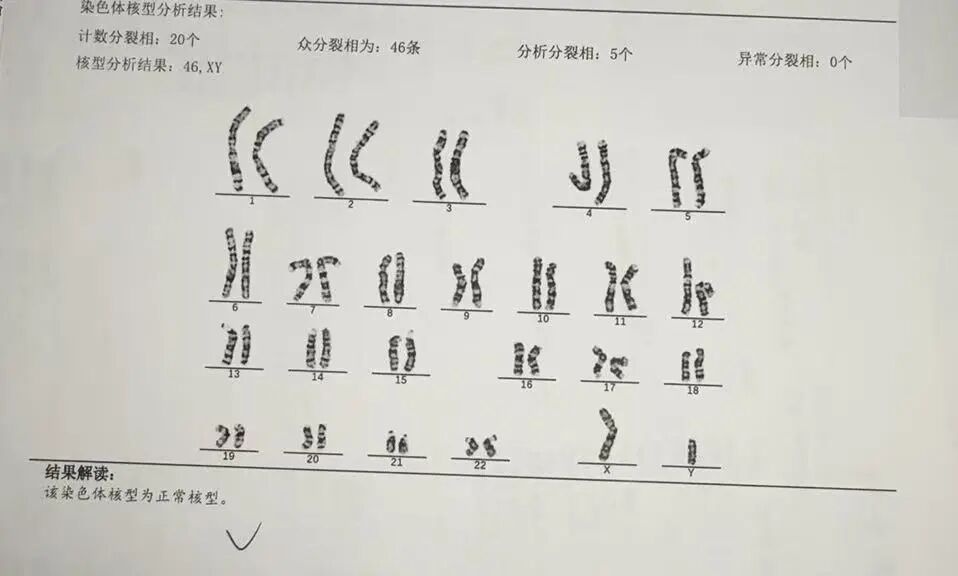 染色体核型分析结果:
计数分裂相: 20个 众分裂相为: 46条 分析分裂相: 5个 异常分裂相: 0个
核型分析结果: 46,XY
1 2 3 4 5
6 7 8 9 10 11 12
13 14 15 16 17 18
19 20 21 22 X Y
结果解读:
该染色体核型为正常核型。